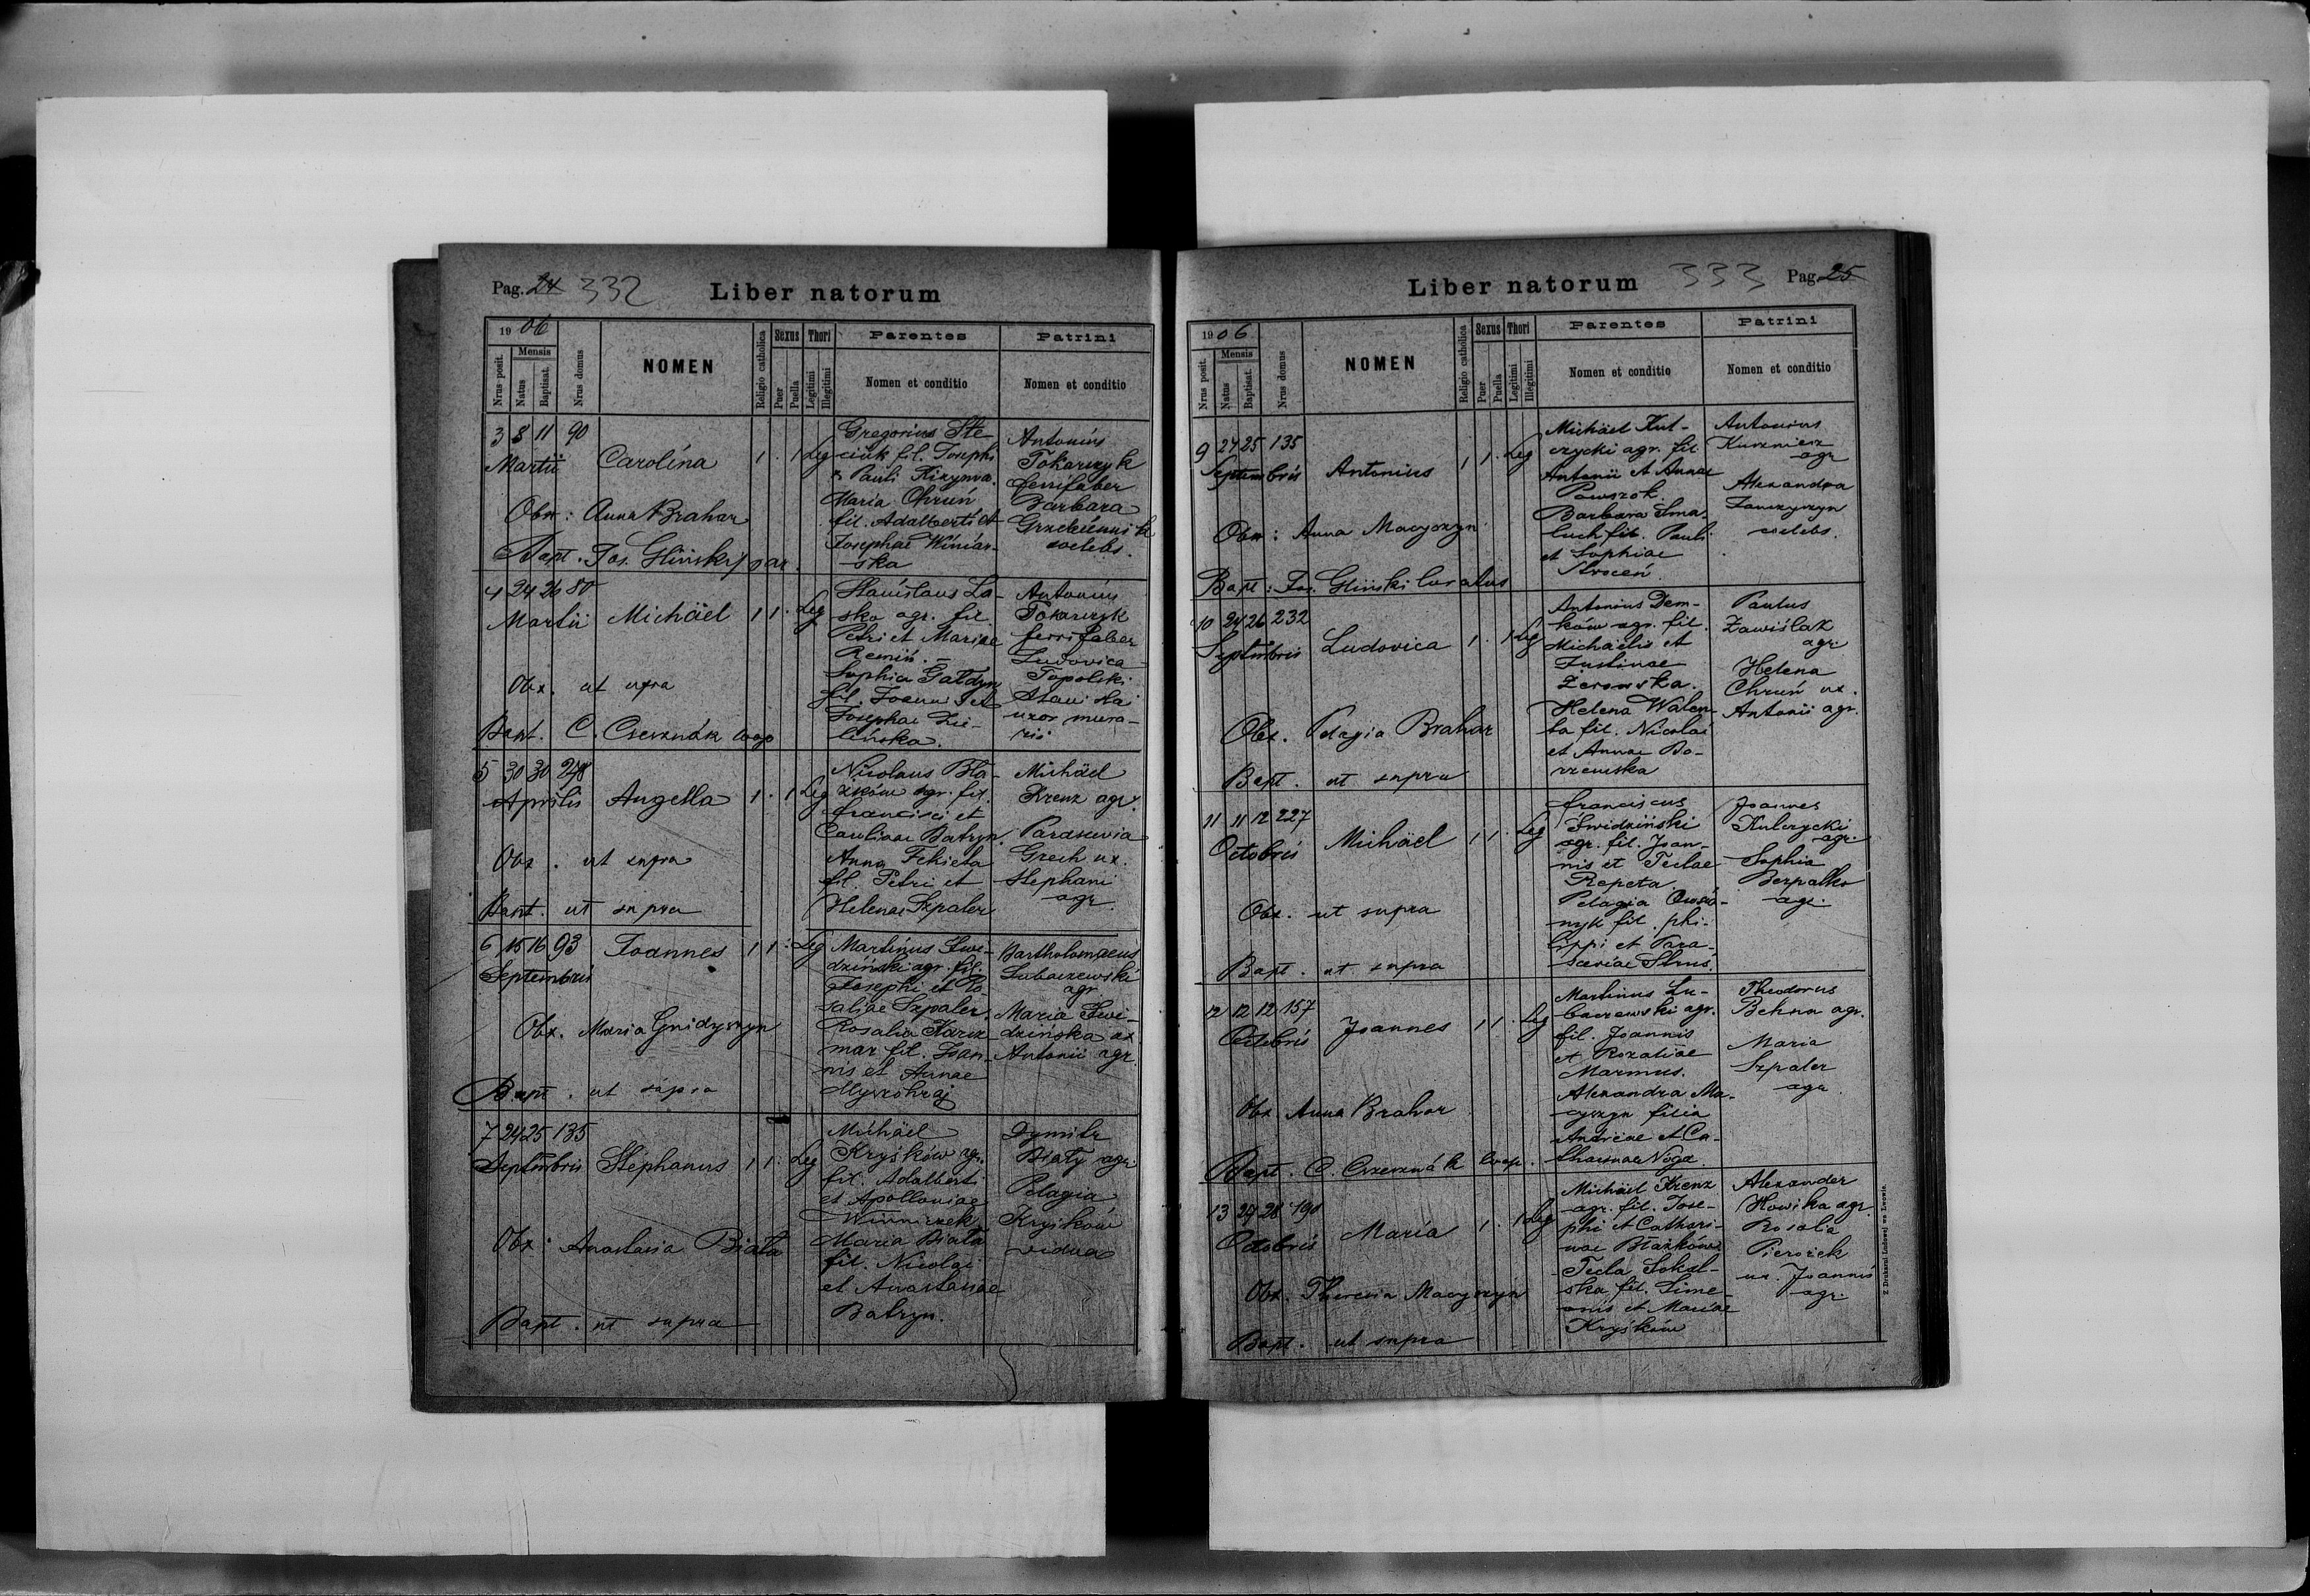 Pag. 24 332 Liber natorum
1906
Nrus posit.
Mensis
Natus
Baptisat.
Nrus domus
NOMEN
Religio catholica
Sexus
Puer
Puella
Thori
Legitimi
Illegitimi
Parentes
Nomen et conditio
Patrini
Nomen et conditio
3 8 11 90
Martii
Carolina
1 . 1 Leg
Obx: Anna Brahar
Bapt. Jos. Gliński par.
Gregorius Ste-
ciuk fil. Josephi
Maria Chruń
fil. Adalberti et
Josephae Winiar-
ska
Antonius
Tokarczyk
ferrifaber
Barbara
coelebs.
4 24 26 80
Martii
Michäel
1 1 . Leg
Obx. ut supra
Bapt. C. Czerznák coop
Stanislaus La-
sko agr. fil.
Petri et Mariae
Remiń.
Sophia Gałdyn
fil. Joannis et
Josephae Zie-
lińska.
Antonius
Tokarczyk
ferrifaber
Ludovica
Topolski
Stanislai
uxor mura-
rii
5 30 30 248
Aprilis
Angella
1 . 1 Leg
Obx. ut supra
Bapt. ut supra
Nicolaus Bła-
żków agr. fil.
Francisci et
Carolinae Batryn.
Anna Fekieta
fil. Petri et
Helenae Szpaler
Michäel
Krenz agr.
Parascevia
Grech ux.
Stephani
agr.
6 15 16 93
Septembris
Joannes
1 1 . Leg
Obx. Maria Gnidyszyn
Bapt. ut supra
Martinus Swi-
dziński agr. fil.
Josephi et Ro-
saliae Szpaler.
Rosalia Karcz
mar fil. Joan-
nis et Annae
Myszohraj
Bartholomaeus
Lubaczewski
agr
Maria Swi-
dzińska ux
Antonii agr.
7 24 25 135
Septembris
Stephanus
1 1 . Leg
Obx: Anastasia Biała
Bapt. ut supra
Michäel
Kryśków agr.
fil. Adalberti
et Apolloniae
Winniczek
Maria Biała
fil. Nicolai
et Anastasiae
Batryn.
Dymitr
Biały agr.
Pelagia
Kryśków
vidua
Liber natorum 333 Pag. 25
1906
Nrus posit.
Mensis
Natus
Baptisat.
Nrus domus
NOMEN
Religio catholica
Sexus
Puer
Puella
Thori
Legitimi
Illegitimi
Parentes
Nomen et conditio
Patrini
Nomen et conditio
9 24 25 135
Septembris
Antonius
1 1 . Leg
Obx: Anna Macyszyn
Bapt: Jos. Gliński Curatus
Michäel Kul-
czycki agr. fil.
Antonii et Annae
Powszok.
Barbara Sma-
luch fil. Pauli
et Sophiae
Stroceń.
Antonius
Kuzniez
agr
Alexandra
Janczyszyn
coelebs.
10 24 26 232
Septembris
Ludovica
1 . 1 Leg
Obx. Pelagia Brahar
Bapt. ut supra
Antonius Dem-
ków agr. fil.
Michäelis et
Justinae
Zerowska.
Helena Walen
ta fil. Nicolai
et Annae Bo-
rzemska
Paulus
Zawiślak
agr
Helena
Chruń ux.
Antonii agr.
11 11 12 227
Octobris
Michäel
1 1 . Leg
Obx. ut supra
Bapt. ut supra
Franciscus
Świdziński
agr. fil. Joan-
nis et Teclae
Repeta.
nyk fil. Phi-
lippi et Para-
sceviae Strus.
Joannes
Kulczycki
agr.
Sophia
Berpalko
agr.
12 12 12 157
Octobris
Joannes
1 1 . Leg
Obx. Anna Brahar
Bapt. C. Czerznák Coop.
Martinus Lu-
baczewski agr.
fil. Joannis
et Rozaliae
Marmus.
Alexandra Ma-
cyszyn filia
Andreae et Ca-
tharinae Noga.
Theodorus
Behna agr.
Maria
Szpaler
agr
13 27 28 190
Octobris
Maria
1 . 1 Leg
Obx. Theresia Macyszyn
Bapt. ut supra
Michäel Krenz
agr. fil. Jose-
phi et Cathari-
nae Błażków
Tecla Sokal-
ska fil. Sime-
onis et Mariae
Kryśków
Alexander
Howika agr.
Rosalia
Pierożek
ux. Joannis
agr.
Z Drukarni Ludowej we Lwowie.